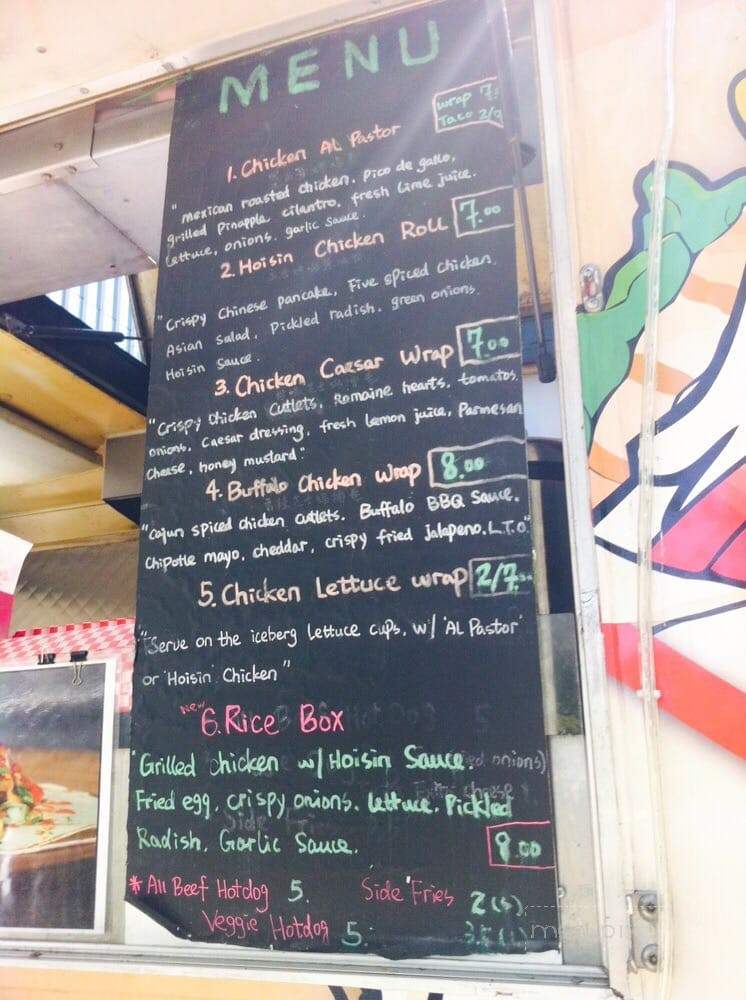 MENU
wrap 7.
Taco 2/
1. Chicken AL Pastor
"mexican roasted chicken, pico de gallo,
grilled Pinapple, cilantro, fresh lime juice.
Lettuce, onions. garlic sauce.
2. Hoisin Chicken Roll 7.00
"Crispy Chinese pancake, Five spiced chicken,
Asian salad, Pickled radish, green onions.
Hoisin Sauce.
3. Chicken Caesar Wrap 7.00
"Crispy Chicken Cutlets, Romaine hearts, tomatos,
onions, Caesar dressing, fresh lemon juice, Parmesan
Cheese, honey mustard."
4. Buffalo Chicken Wrap 8.00
"Cajun spiced chicken cutlets. Buffalo BBQ Sauce.
Chipotle mayo, cheddar, crispy fried jalapeno. L.T.O"
5. Chicken Lettuce wrap 2/7.
"Serve on the iceberg Lettuce cups, w/ 'AL Pastor'
or 'Hoisin' Chicken"
New
6. Rice Box
"Grilled chicken w/ Hoisin Sauce.
Fried egg, crispy onions. Lettuce, Pickled
Radish, Garlic Sauce.
.00
* All Beef Hotdog 5. Side Fries 2(s)
Veggie Hotdog 5.